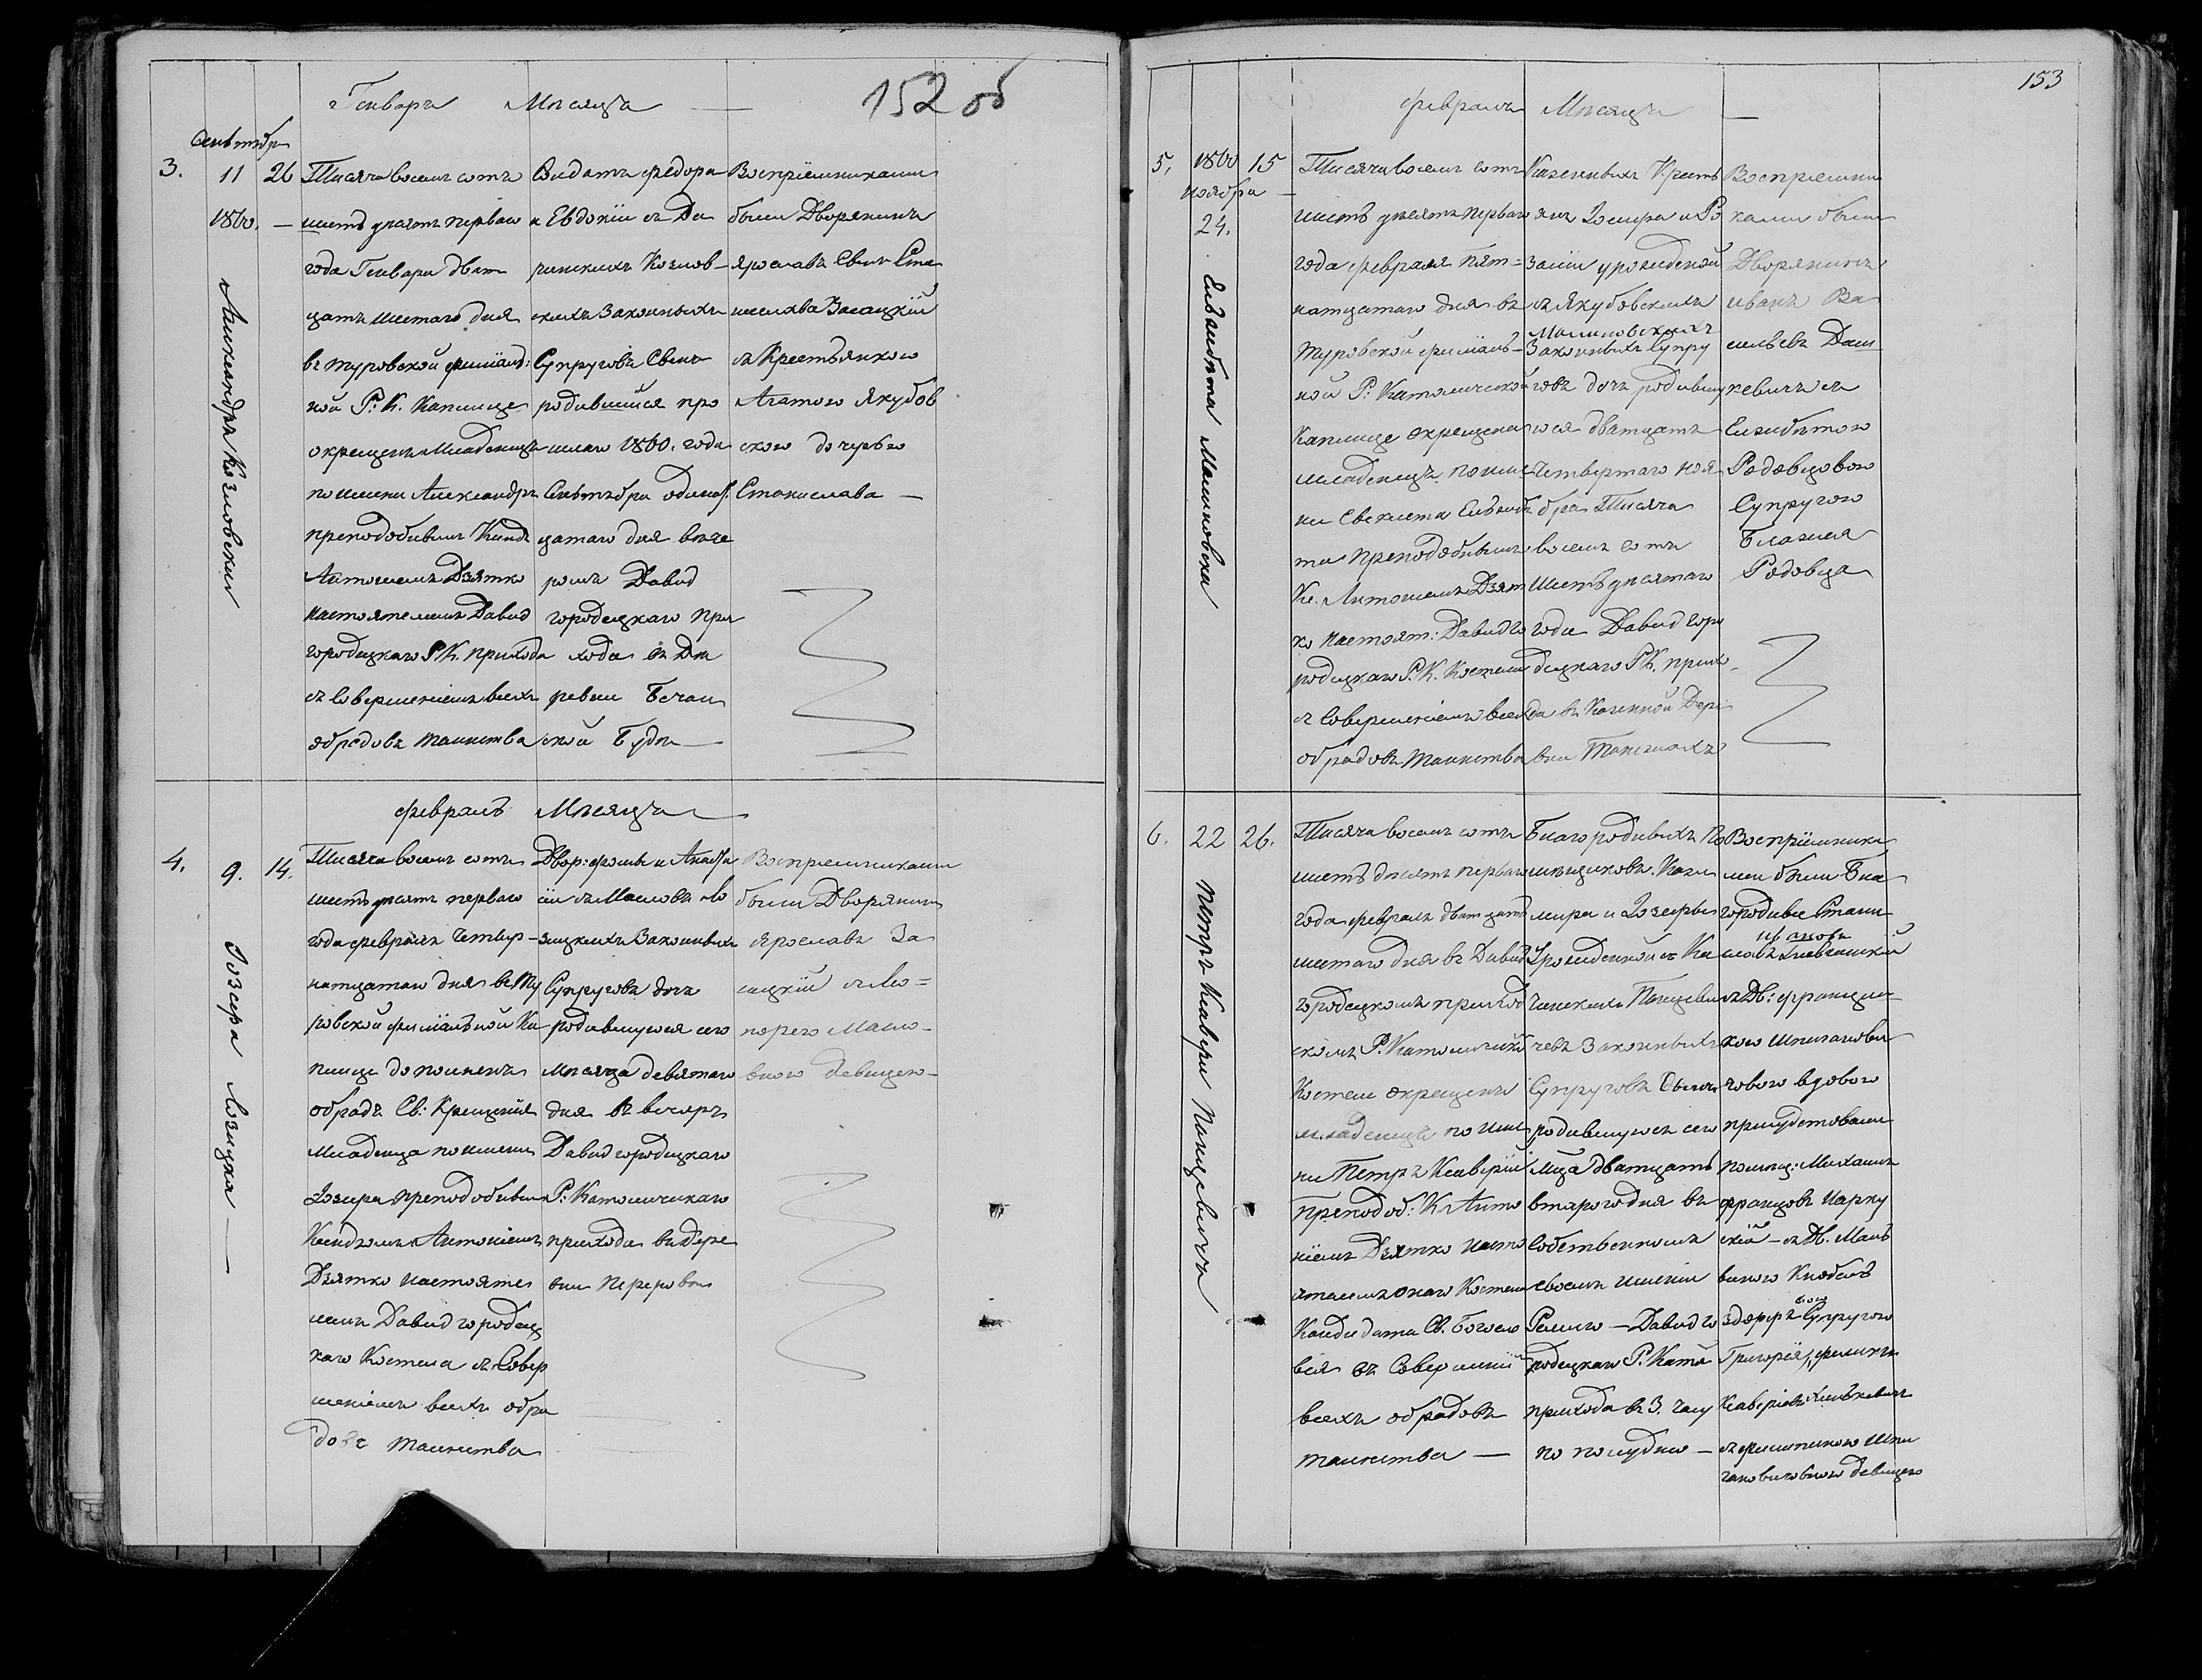 152 об
Генваря Месяца —
3.
Сентября
11
1860.
26
—
Александръ Козловскій
Тысяча восемь сотъ
шестьдесятъ перваго
года Генваря двад
цать шестаго дня
въ Туровской филіаль:
ной Р: К. Каплице
окрещенъ Младенецъ
по имени Александръ
преподобнымъ Ксенд
Антоніемъ Дзятко
настоятелемъ Давид
городецкаго Р.К. прихода
съ Совершеніемъ всехъ
обрядовъ таинства
Солдатъ Федора
и Евдокіи съ
Козлов—
скихъ Законныхъ
Супруговъ Сынъ
родившійся про
шлаго 1860. года
Сентября одинна
цатаго дня вече
ромъ Давид
городецкаго При
хода въ Де
ревни
ской Буде —
Воспріемниками
были Дворянинъ
Ярославъ Сынъ Ста
нислава Залецкій
съ Крестьянкою
Агатою Якубов
скою дочерью
Станислава —
Февраль Месяца —
4.
9.
14.
Іозефа Лозицка —
Тысяча восемь сотъ
шестьдесятъ перваго
года февраля Четыр—
натцатаго дня въ Ту
ровской филіальной Ка
плице дополненъ
обрядъ Св: Крещенія
Младенца по имени
Іозефа преподобнымъ
Ксендзомъ Антоніемъ
Дзятко Настояте
лемъ Давидгородец
каго Костела съ Совер
шеніемъ всехъ обря
довъ таинства
Двор: Фомы и Анаста
сіи съ Масловъ Ло
зицкихъ Законныхъ
Супруговъ дочь
родившуюся сего
Месяца девятаго
дня въ вечеръ
Давидгородецкаго
Р: Католическаго
прихода въ Дере
вни Переровъ
Воспріемниками
были Дворянинъ
Ярославъ За
лецкій съ Ле=
Масло—
вною Девицею—
153
Февраль Месяца —
5,
1860
ноября
24.
15
—
Елизабета Малиновска
Тысяча восемь сотъ
шестьдесятъ перваго
года февраля пят=
натцатаго дня въ
Туровской филіаль—
ной Р: Католической
Каплице окрещена
младенецъ по име
ни Елизабе
та Преподобнымъ
Кс. Антоніемъ Дзят
ко Настоят: Давидго
родецкаго Р.К. Костела
съ Совершеніемъ всехъ
обрядовъ таинства
Казенныхъ Кресть
янъ Іозефа и Ро
заліи урожденой
съ Якубовскихъ
Малиновскихъ
Законныхъ Супру
говъ дочь родившу
юся двадцать
Четвертаго ноя
бря Тысяча
восемь сотъ
шестьдесятаго
года Давидгоро
децкаго Р.К. прихо
да въ Казенной Дере
вни
Воспріемни
ками были
Дворянинъ
Иванъ Ва
сильевъ Даш
кевичъ съ
Елизабетою
Родовцовою
Супругою
Блажея
Родовца
6.
22
26.
Петръ Ксаверій Пащевичъ
Тысяча восемь сотъ
шестьдесятъ перваго
года февраля двадцать
шестаго дня въ Давид
городецкомъ приход
скомъ Р. Католической
Костеле окрещенъ
младенецъ по име
ни Петръ Ксаверій
Преподоб: К. Анто
ніемъ Дзятко Насто
ятелемъ онаго Костела
Кандидата Св. Богосло
вія съ Совершеніи
всехъ обрядовъ
таинства —
Благородныхъ По
мещиковъ. Кази
мира и Іозефы
Урожденной съ Ка
Пащеви
чевъ Законныхъ
Супруговъ Сынъ
родившуюсь сего
м-ца двадцать
втораго дня въ
Собственномъ
своемъ именіи
— Давидго
родецкаго Р. Като
прихода въ 3. часу
по полудню —
Воспріемника
ми были Бла
городные Стани
Ивановъ
славъ
съ Дв: Франциш
кою Шпиганови
чевою вдовою
присудствовали
помещ: Михаилъ
Францовъ
скій — съ Дв.
Супругою
Григорія, Феликсъ
Ксаверіевъ
Шпи
гановичовною Девицею